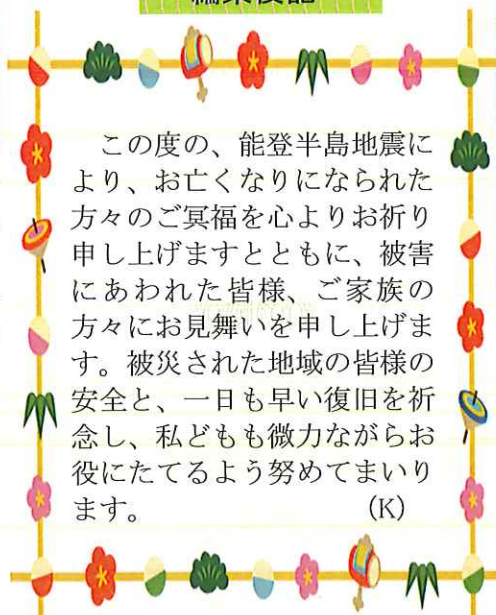 編集後記
　この度の、能登半島地震に
より、お亡くなりになられた
方々のご冥福を心よりお祈り
申し上げますとともに、被害
にあわれた皆様、ご家族の
方々にお見舞いを申し上げま
す。被災された地域の皆様の
安全と、一日も早い復旧を祈
念し、私どもも微力ながらお
役にたてるよう努めてまいり
ます。　　　　　　　（K）